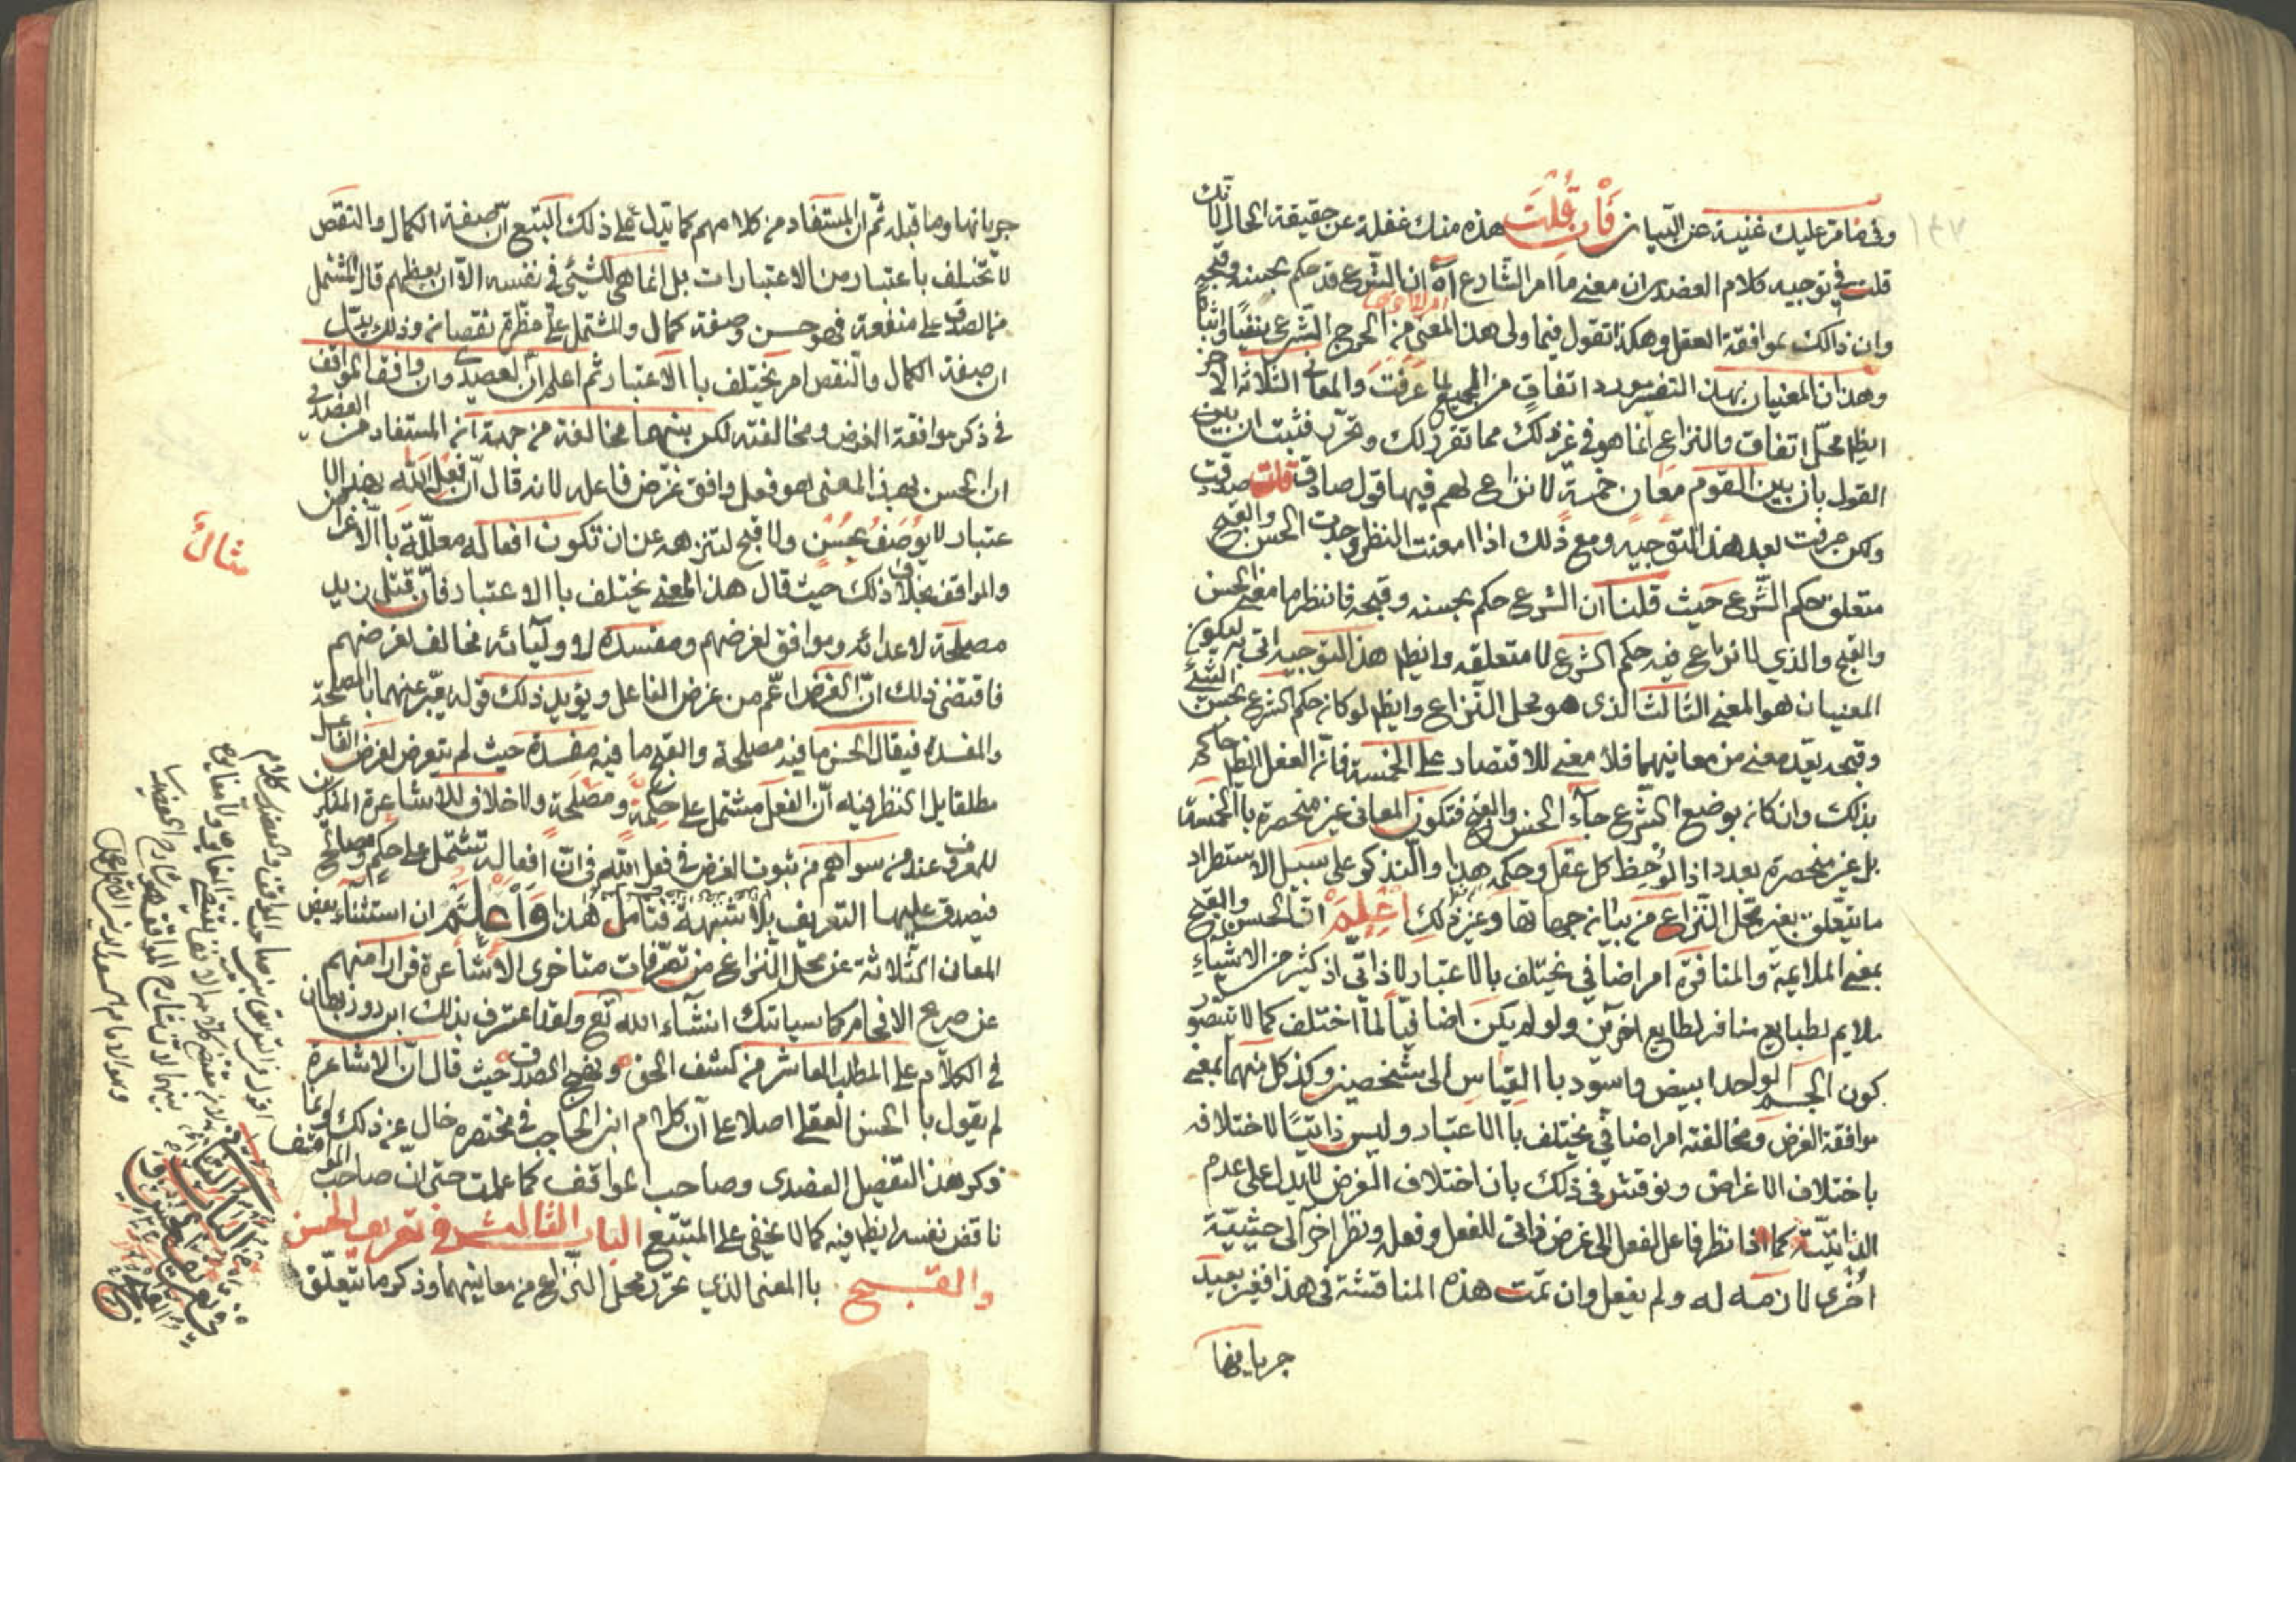 وفي ما مر عليك غنية عن البيان فان قلت هذه منك غفلة عن حقيقة الحال لانك
قلت في توجيه كلام العضدى ان معنى ما امر الشارع آه ان الشرع قد حكم بحسنه وقبحه
وان ذالك بموافقة العقل وهكذا تقول فيما ولى هذا المعنى من الحرج الشرعي نفيا واثباتا
وهذان المعنيان بهذا التفسير مورد اتفاق من الجميع لما عرفت والمعاني الثلاثة الاخر
ايظا محل اتفاق والنزاع انما هو في غير ذلك مما تقرر لك وتحرر فثبت ان
القول بان بين القوم معان خمسة لا نزاع لهم فيها قول صادق قلت صدقت
ولكن حرفت بعد هذا التوجيه ومع ذلك اذا امعنت النظر وجدت الحسن والقبح
متعلق بحكم الشرع حيث قلنا ان الشرع حكم بحسنه وقبحه فانظر ما معنى الحسن
والقبح والذي لا نزاع فيه حكم الشرع لا متعلقه وايظا هذا التوجيه اتى به ليكون
المعنيان هو المعنى الثالث الذى هو محل النزاع وايظا لو كان حكم الشرع بحسن الشئ
وقبحه يعد معنى من معانيهما فلا معنى للاقتصاد على الخمسة فان العقل ايظا حاكم
بذلك وان كان بوضع الشرع جاء الحسن والقبح فتكون المعاني غير منحصرة باالخمسة
بل غير منحصرة بعدد اذا لوحظ كل عقل وحكمه هذا ولنذكر على سبيل الاستطراد
ما يتعلق بغير محل النزاع من بيان جهاتها وغير ذلك اعلم ان الحسن والقبح
بمعنى الملايمة والمنافرة امر اضافي يختلف بالاعتبار لا ذاتي اذ كثير من الاشياء
ملايم لطبايع منافر لطايع اخرين ولو لم يكن اضافيا لما اختلف كما لا يتصور
كون الجسم الواحد ابيض واسود باالقياس الى شخصين وكذ كل منهما بمعنى
موافقة الغرض ومخالفته امر اضافي يختلف باالاعتبار وليس ذاتيا لاختلافه
باختلاف الاغراض ونوقش في ذلك بان اختلاف الغرض لا يدل على عدم
الذاتية كما اذا نظر فاعل الفعل الى غرض ذاتي للفعل وفعله ونظر اخر الى حيثية
اخرى لازمه له ولم يفعل وان تمت هذه المناقشة في هذا فغير بعيد
جريانها
جريانها وما قبله ثم ان المستفاد من كلامهم كما يدل على ذلك التتبع ان صفة الكمال والنقص
لا تختلف باعتبار من الاعتبارات بل انما هى للشئ في نفسه الا ان بعظهم قال المشتمل
من الصدق على منفعة فهو حسن وصفة كمال والمشتمل على مظرة نقصان وذلك يدل
ان صفة الكمال والنقص امر يختلف باالاعتبار ثم اعلم ان العضدى وان وافق المواقف
في ذكر موافقة الغرض ومخالفته لكن بينهما مخالفة من جهة انه المستفاد من العضدى
ان الحسن بهذ المعنى هو فعل وافق غرض فاعله لانه قال ان فعل الله بهذ الا
عتبار لا يوصف بحسن ولا قبح لتنزهه عن ان تكون افعاله معللة باالاغراض
والمواقف بخلاف ذلك حيث قال هذ المعنى يختلف باالاعتبار فان قتل زيد
مصلحة لاعدائه وموافق لغرضهم ومفسدة لاوليائه مخالف لغرضهم
فاقتضى ذلك ان الغرض اعم من غرض الفاعل ويؤيد ذلك قوله يعبر عنهما باالمصلحة
والمفسده فيقال الحسن ما فيه مصلحة والقبح ما فيه مفسدة حيث لم يتعرض لغرض الفاعل
مطلقا بل النظر فيه ان الفعل مشتمل على حكمة ومصلحة ولا خلاف للاشاعرة المنكرين
للغرض عند من سواهم من ثبوت الغرض في فعل الله في ان افعاله تشتمل على حكم ومصالح
فيصدق عليها التعريف بلا شبهة فتامل هذا واعلم ان استثناء بعض
المعان الثلاثة عن محل النزاع من تصرفات متاخرى الاشاعرة فرارا منهم
عن صريح الافحام كما سياتيك انشاء الله تع ولقد اعترف بذلك ابن روزبهان
في الكلام على المطلب العاشر من كشف الحق ونهج الصدق حيث قال ان الاشاعرة
لم يقول باالحسن العقلي اصلا على ان كلام ابن الحاجب في مختصره خال عن ذلك وانما
ذكر هذا التفصيل العضدى وصاحب المواقف كما علمت حتى ان صاحب المواقف
ناقض نفسه ايظا فيه كما لا يخفى على المتتبع الباب الثالث في تعريف الحسن
والقبح باالمعنى الذي تحرر محل النزاع من معانيهما وذكر ما يتعلق
مثال